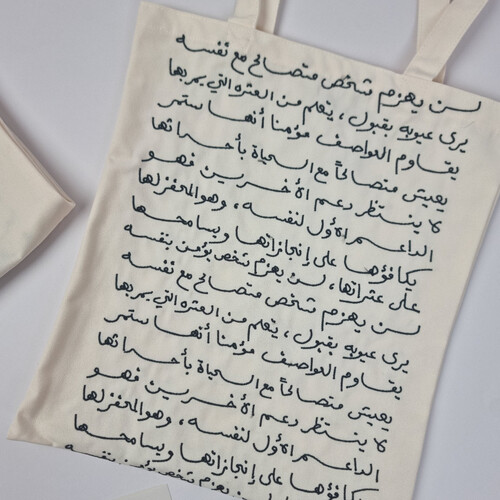 لن يهزم شخص متصالح مع نفسه
يرى عيوبه بقبول ، يتعلم من العثره التي يمر بها
يقاوم العواصف مؤمنا أنها ستمر
يعيش متصالحاً مع الحياة بأحداثها
لا ينتظر دعم الأخرين فهو
الداعم الأول لنفسه ، وهو المحفز لها
يكافؤها على إنجازاتها ويسامحها
على عثراتها ، لن يهزم شخص يؤمن بنفسه
لن يهزم شخص متصالح مع نفسه
يرى عيوبه بقبول ، يتعلم من العثره التي يمر بها
يقاوم العواصف مؤمنا أنها ستمر
يعيش متصالحاً مع الحياة بأحداثها
لا ينتظر دعم الأخرين فهو
الداعم الأول لنفسه ، وهو المحفز لها
يكافؤها على إنجازاتها ويسامحها
يهزم شخص يؤمن بنفسه